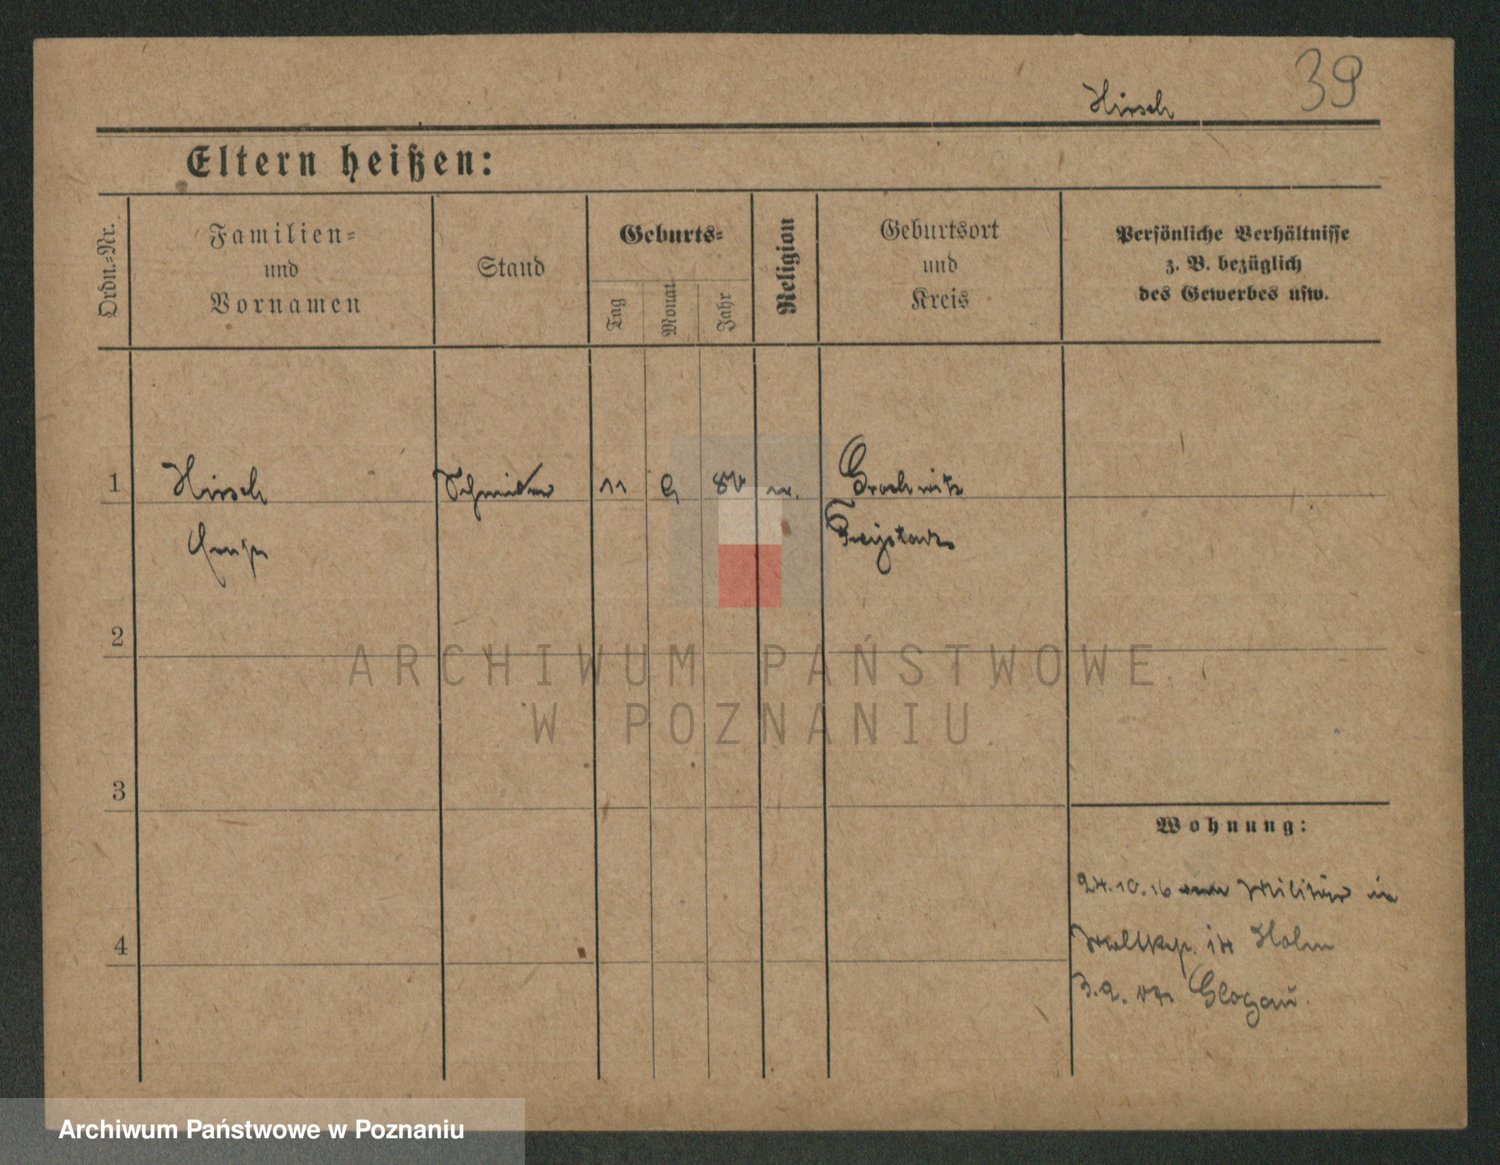 39
Hirsch
Eltern heißen:
Ordn.-Nr.
Familien-
und
Vornamen
Stand
Geburts-
Tag
Monat
Jahr
Religion
Geburtsort
und
Kreis
Persönliche Verhältnisse
z. B. bezüglich
des Gewerbes usw.
1
Hirsch
Schneider
11
9
Grochwitz
Freystadt
2
ARCHIWUM PAŃSTWOWE
W POZNANIU
3
Wohnung:
24.10.16 Militär in
4
Glogau.
Archiwum Państwowe w Poznaniu